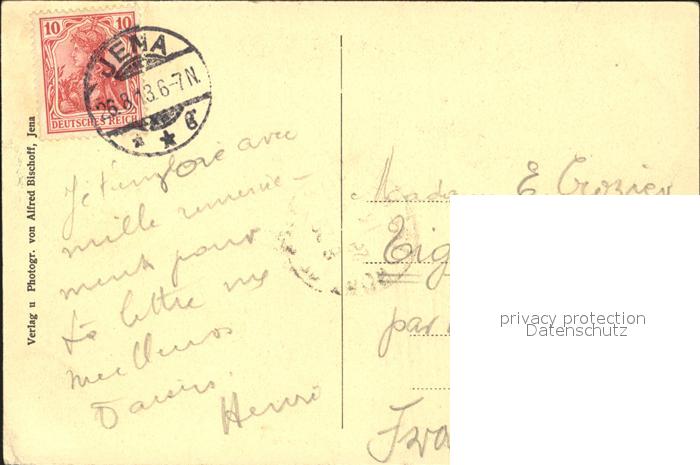 10 10
DEUTSCHES REICH
JENA
26.8.13.6-7N.
* *
Verlag u Photogr. von Alfred Bischoff, Jena
Je t'envoie avec
mille remercie-
ments pour
ta lettre mes
meilleurs
baisers.
Henri
E Crozier
par
privacy protection
Datenschutz